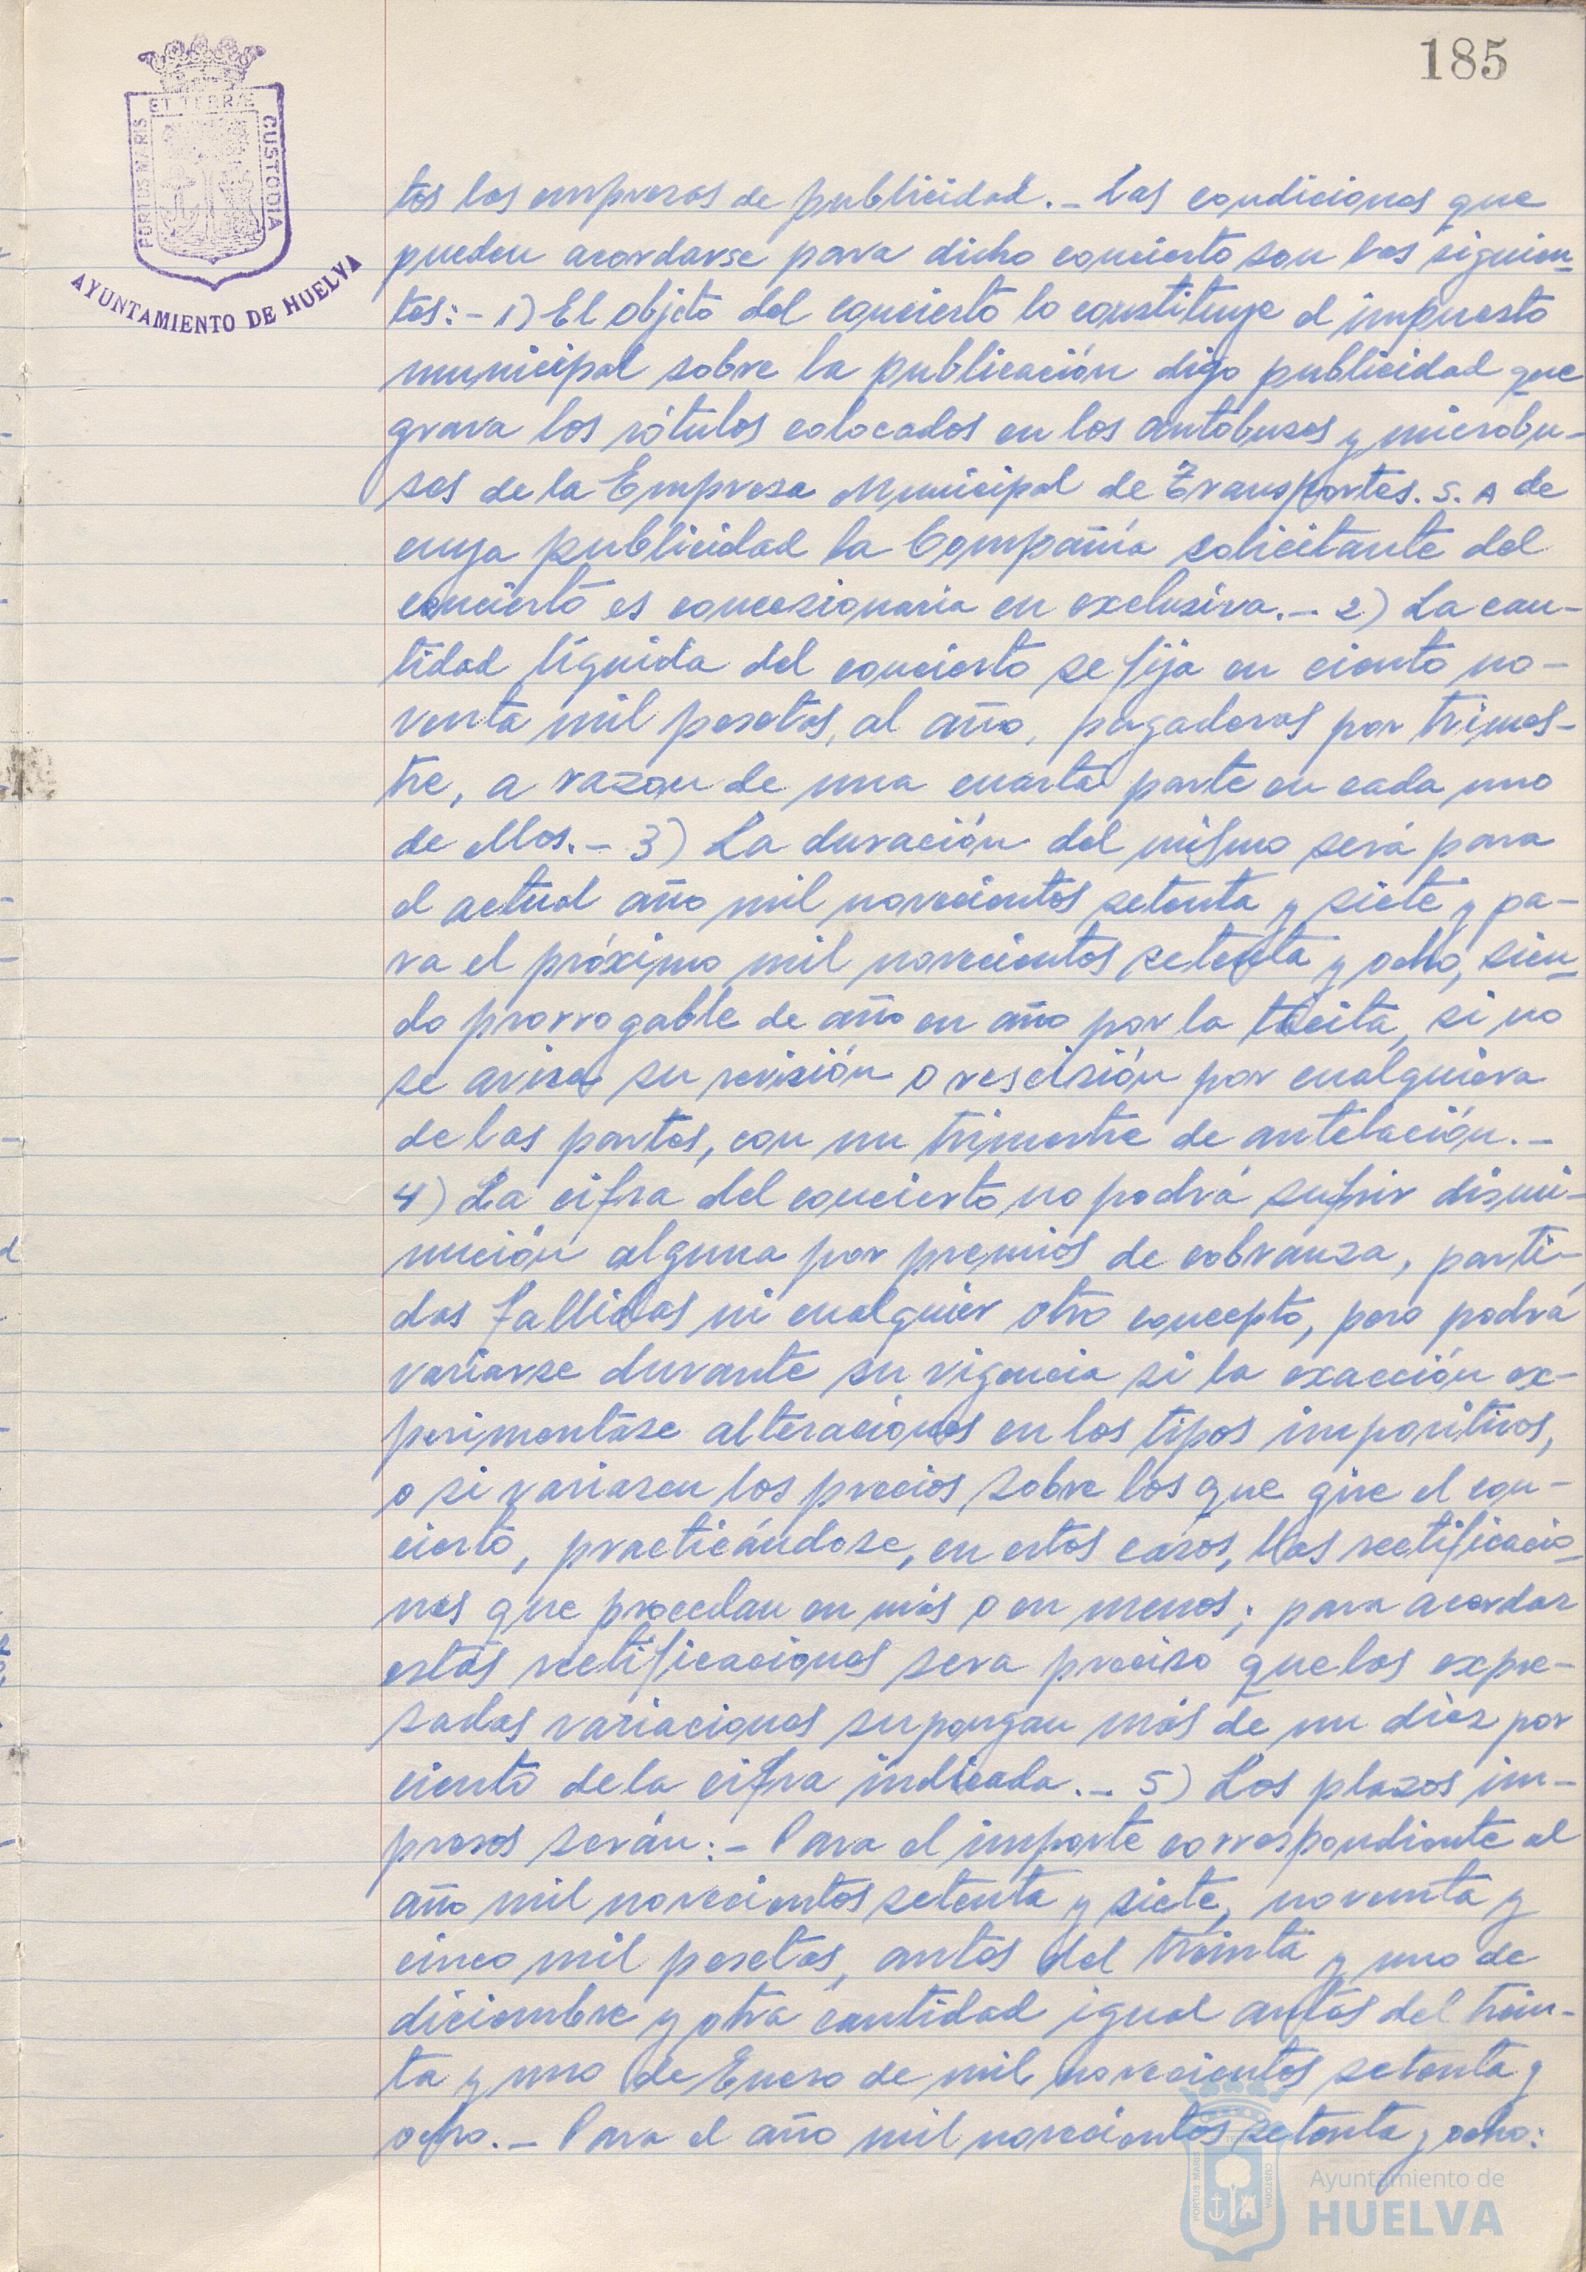 185
ET TERRÆ
PORTUS MARIS
CUSTODIA
AYUNTAMIENTO DE HUELVA
tos las empresas de publicidad.- Las condiciones que
pueden acordarse para dicho concierto son las siguien-
tes:- 1) El objeto del concierto lo constituye el impuesto
municipal sobre la publicación digo publicidad que
grava los rótulos colocados en los autobuses y microbu-
ses de la Empresa Municipal de Transportes. S. A de
cuya publicidad la Compañía solicitante del
concierto es concesionaria en exclusiva.- 2) La can-
tidad líquida del concierto se fija en ciento no-
venta mil pesetas, al año, pagaderas por trimes-
tre, a razon de una cuarta parte en cada uno
de ellos.- 3) La duración del mismo será para
el actual año mil novecientos setenta y siete y pa-
ra el próximo mil novecientos setenta y ocho, sien-
do prorrogable de año en año por la tácita, si no
se avisa su revisión o rescisión por cualquiera
de las partes, con un trimestre de antelación.-
4) La cifra del concierto no podrá sufrir dismi-
nución alguna por premios de cobranza, parti-
das fallidas ni cualquier otro concepto, pero podrá
variarse durante su vigencia si la exacción ex-
perimentase alteraciones en los tipos impositivos,
o si variasen los precios sobre los que gire el con-
cierto, practicándose, en estos casos, las rectificacio-
nes que procedan en más o en menos; para acordar
estas rectificaciones sera preciso que las expre-
sadas variaciones supongan más de un diez por
ciento de la cifra indicada.- 5) Los plazos im-
presos serán:- Para el importe correspondiente al
año mil novecientos setenta y siete, noventa y
cinco mil pesetas, antes del treinta y uno de
diciembre y otra cantidad igual antes del trein-
ta y uno de Enero de mil novecientos setenta y
ocho.- Para el año mil novecientos setenta y ocho:
PORTUS MARIS
CUSTODIA
Ayuntamiento de
HUELVA